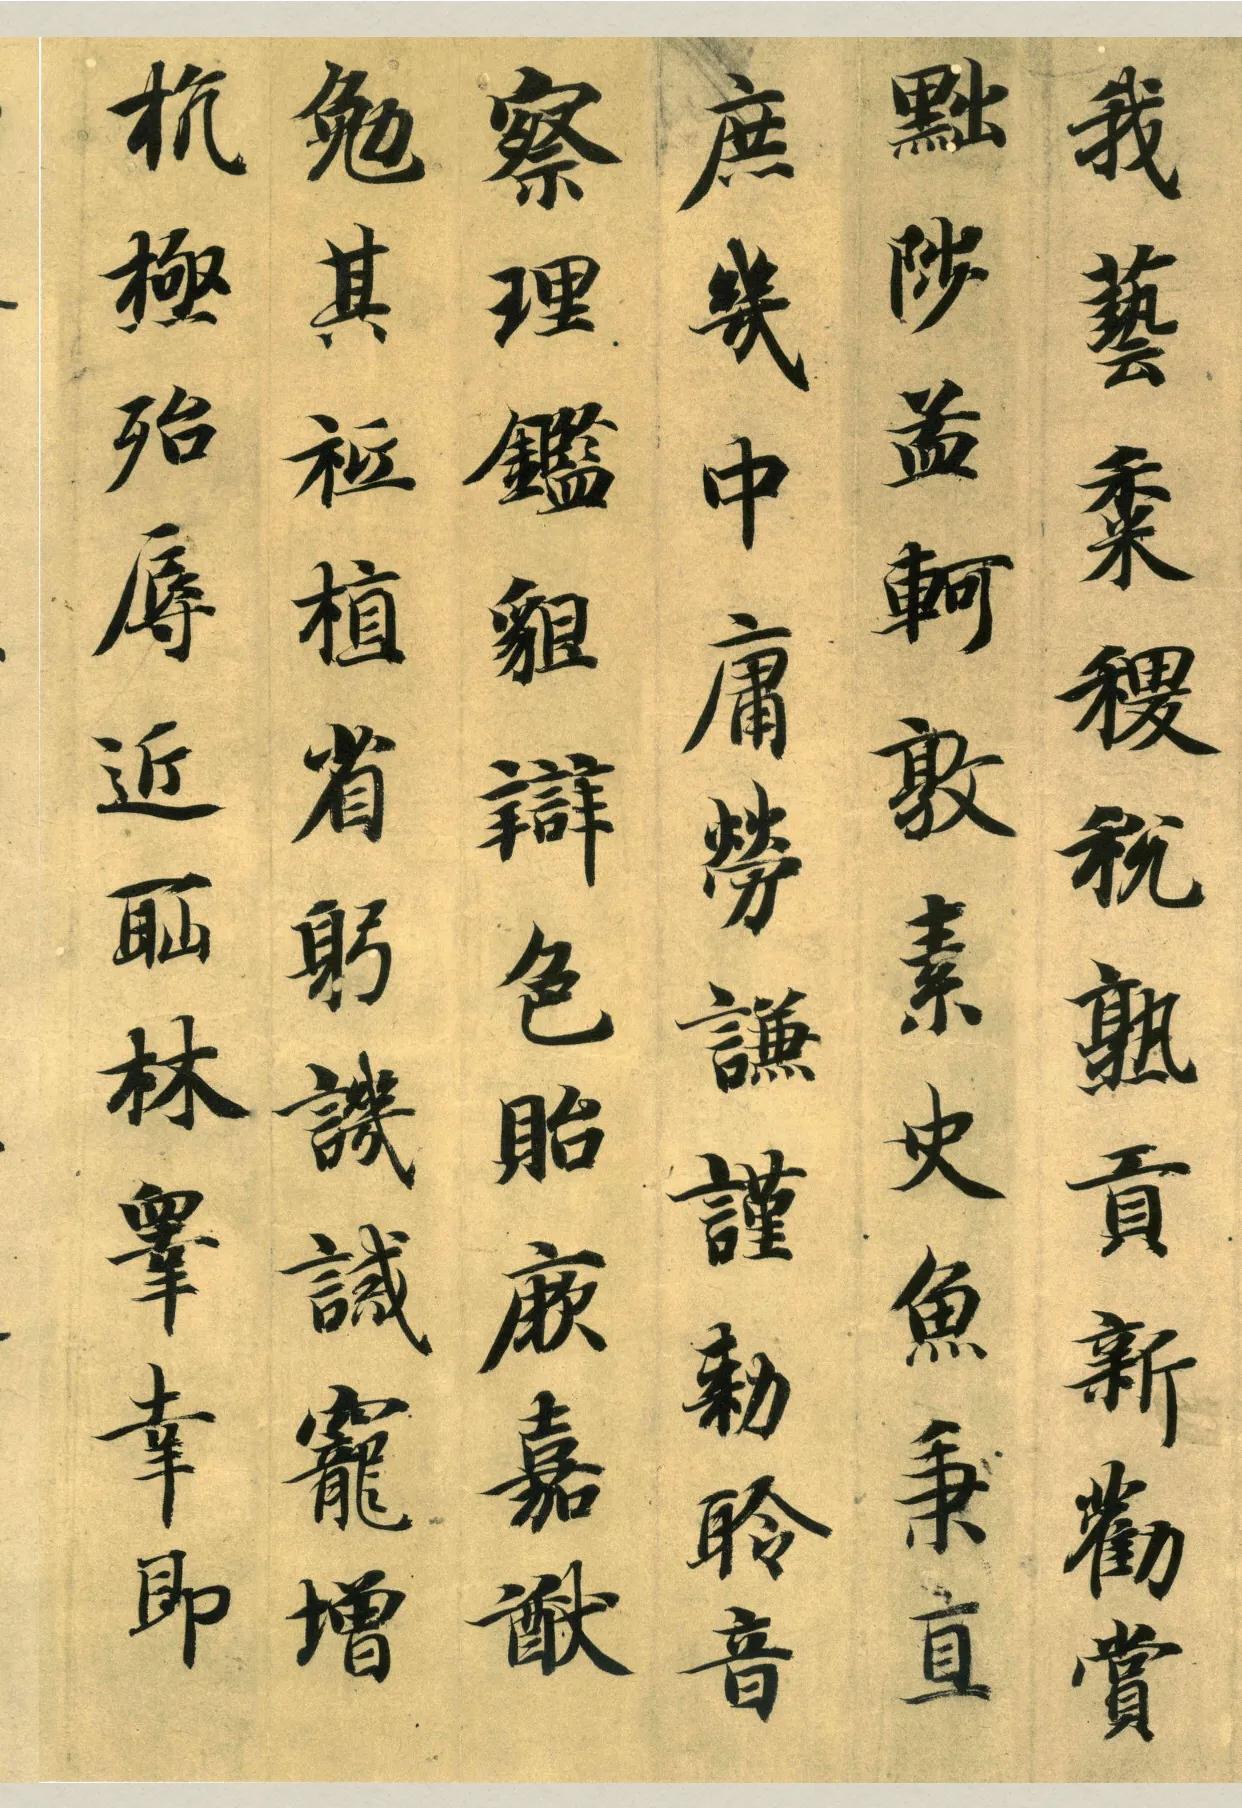 我藝黍稷稅熟貢新勸賞
黜陟孟軻敦素史魚秉直
庶幾中庸勞謙謹勑聆音
察理鑑貌辯色貽厥嘉猷
勉其祗植省躬譏誡寵增
抗極殆辱近恥林睾幸即